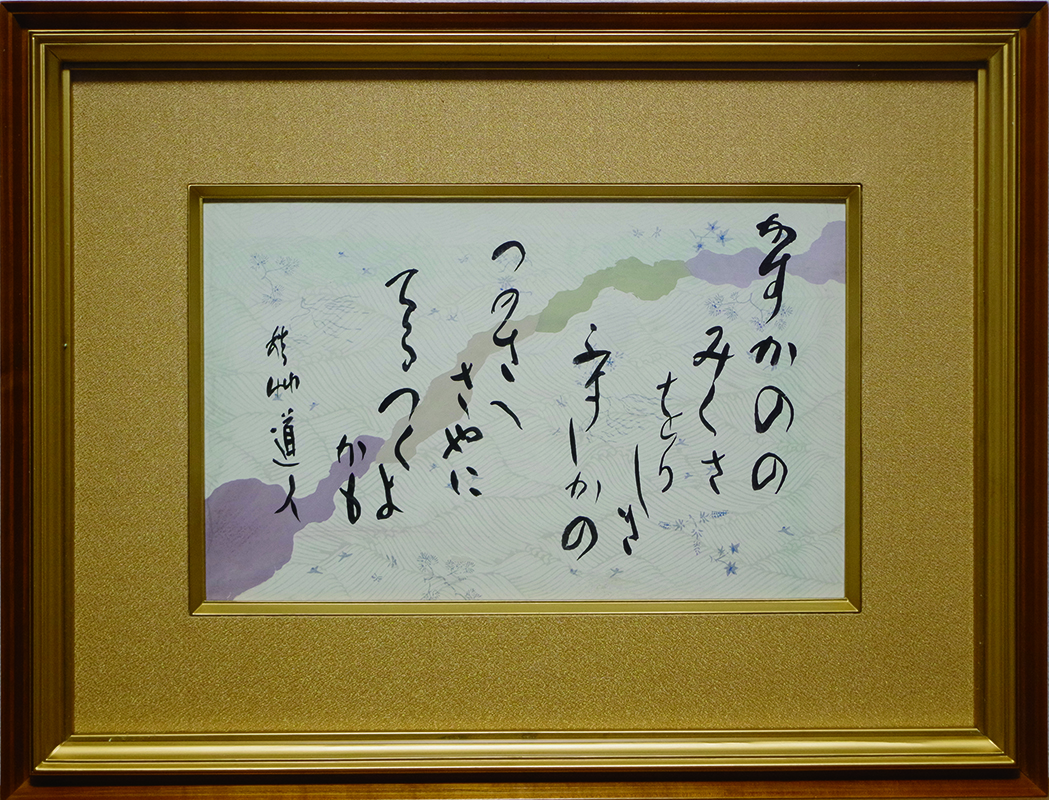 かすかのの
みくさ
をり
しき
ふすしかの
つのさへ
さやに
てるつくよ
かも
秋艸道人